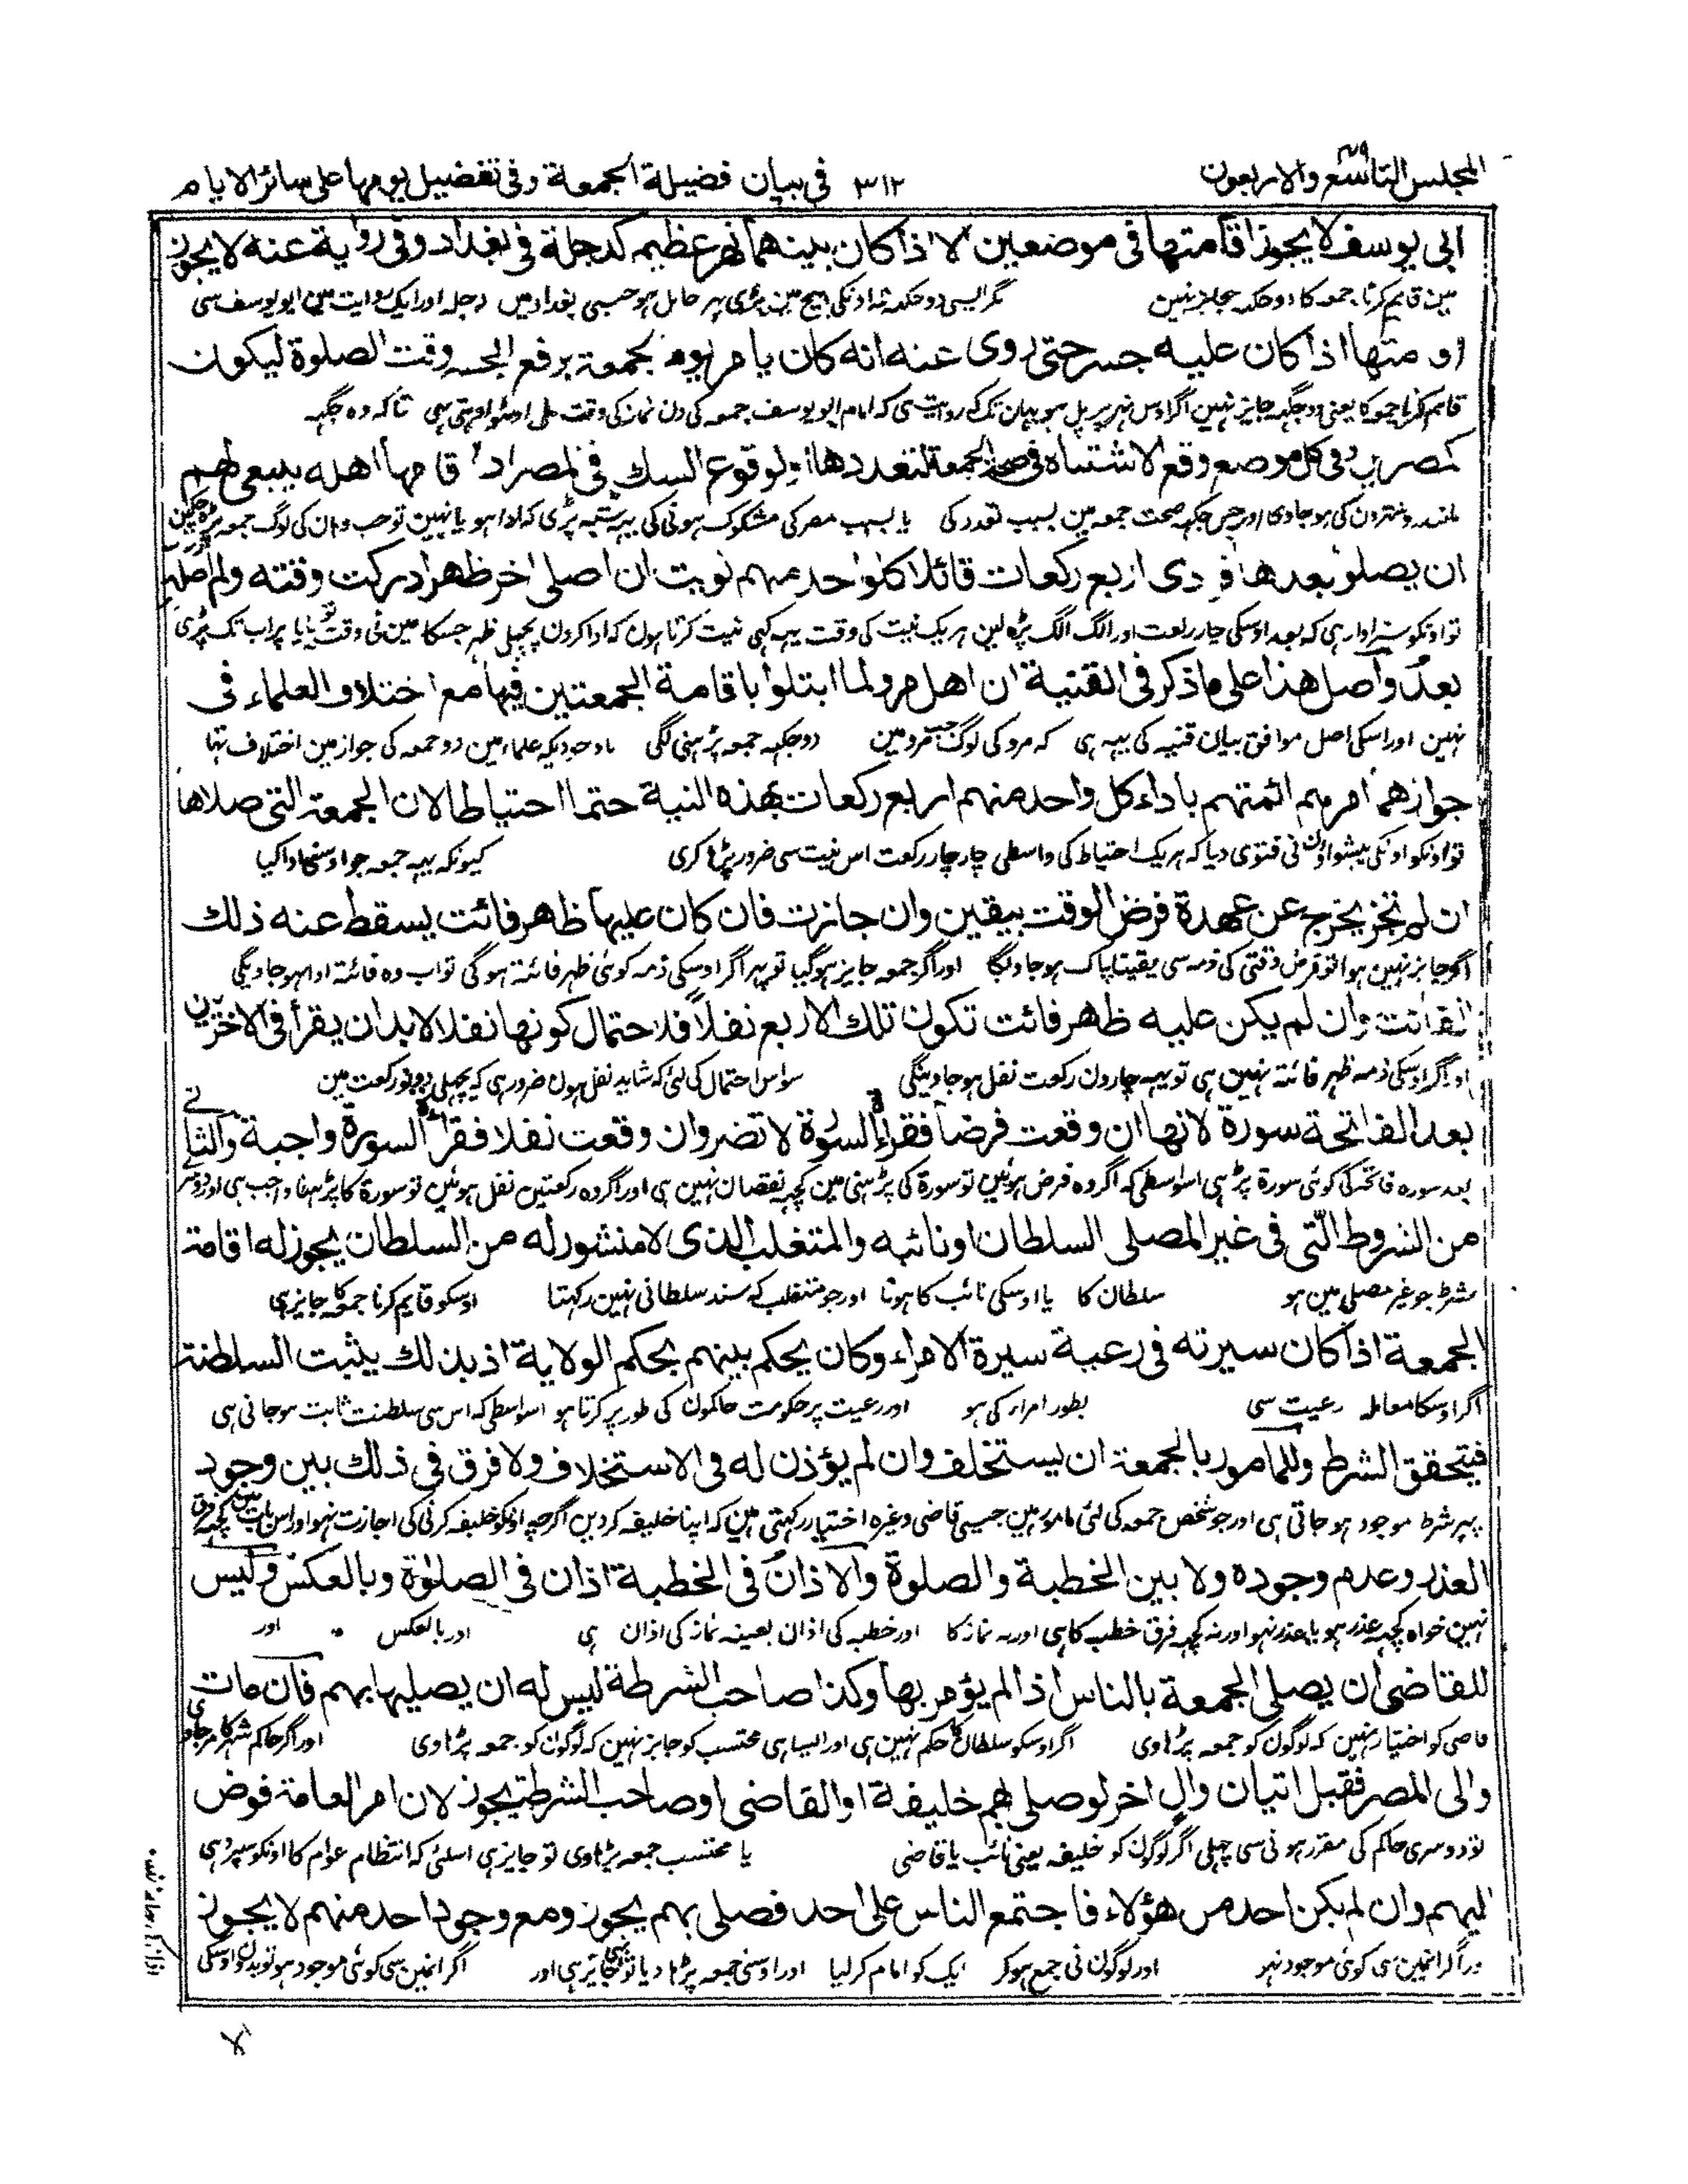 المجلس التاسع والاربعون ٣١٢ فى بيان فضيلة الجمعة وفى تفضيل يومها على سائر الايام
ابى يوسف لا يجوز اقامتها فى موضعين الا اذا كان بينهما نهر عظيم كدجلة فى بغداد وفى رواية عنه لا يجوز
مين قايم كرنا جمعه كا دو جكہ جايز نہين مگر ايسى دو جكہ كہ اونكى بيچ مين بڑى نہر حايل ہو جيسى بغداد ميں دجلہ اور ايك روايت مين ابو يوسف سى
اقامتها اذا كان عليه جسر حتى روى عنه انه كان يامر يوم الجمعة برفع الجسر وقت الصلوة ليكون
قايم كرنا جمعو كا يعنى دو جگہہ جايز نہين اگر اوس نہر پر پل ہو يہان تك كہ روايت ہى كہ امام ابو يوسف جمعہ كى دن نماز كى وقت پل اوٹھوا ديتى تہى تا كہ وہ جگہہ
كمصرين وفى كل موضع وقع الاشتباه فى صحة الجمعة لتعددها او لوقوع الشك فى المصر اذا اقامها اهله ينبغى لهم
مانند دو شہرون كى ہو جاوى اور جس جگہہ صحت جمعہ مين بسبب تعدد كى يا بسبب مصر كى مشكوك ہونى كى يہہ شبہہ پڑى كہ ادا ہو يا نہين تو جب وہان كى لوگ جمعہ پڑہ چكين
ان يصلو بعدها فرادى اربع ركعات قائلا كل واحد منهم نويت ان اصلى اخر ظهر ادركت وقته ولم اصله
تو اونكو سزاوار ہى كہ بعد اوسكى چار ركعت اور الگ الگ پڑہ لين ہر يك نيت كى وقت يہہ كہى نيت كرتا ہون كہ ادا كرون پچہلى ظہر جسكا مين نى وقت تو پايا پر اب تك پڑى
بعد واصل هذا على ما ذكر فى القنية ان اهل مرو لما ابتلوا باقامة الجمعتين فيها مع اختلاف العلماء فى
نہين اور اسكى اصل موافق بيان قنيہ كى يہہ ہى كہ مرو كى لوگ جب مرو مين دو جگہہ جمعہ پڑہنى لگى باوجوديكہ علماء مين دو جمعہ كى جواز مين اختلاف تہا
جوازهما امرهم ائمتهم باداء كل واحد منهم اربع ركعات بهذه النية حتما احتياطا لان الجمعة التى صلاها
تو اونكو اونكى پيشواؤن نى فتوى ديا كہ ہر يك احتياط كى واسطى چار چار ركعت اس نيت سى ضرور پڑہا كرى كيونكہ يہہ جمعہ جو اوسنى ادا كيا
ان لم تجز يخرج عن عهدة فرض الوقت بيقين وان جازت فان كان عليها ظهر فائت يسقط عنه ذلك
اگر جايز نہين ہوا تو فرض وقتى كى ذمہ سى يقينا پاك ہو جاويگا اور اگر جمعہ جايز ہو گيا تو پہر اگر اوسكى ذمہ كوئى ظہر فائتہ ہو گى تو اب وہ فائتہ ادا ہو جاويگى
الفائت وان لم يكن عليه ظهر فائت تكون تلك الاربع نفلا فلاحتمال كونها نفلا لا بد ان يقرأ فى الاخرين
اور اگر اوسكى ذمہ ظہر فائتہ نہين ہى تو يہہ چارون ركعت نفل ہو جاوينگى سو اس احتمال كى لئى كہ شايد نفل ہون ضرور ہى كہ پچہلى دونو ركعت مين
بعد الفاتحة سورة لانها ان وقعت فرضا فقراءة السورة لا تضر وان وقعت نفلا فقراءة السورة واجبة والثانى
بعد سورہ فاتحہ كى كوئى سورة پڑہى اسواسطى كہ اگر وہ فرض ہوئين تو سورة كى پڑہنى مين كچہہ نقصان نہين ہى اور اگر وہ ركعتين نفل ہوئين تو سورة كا پڑہنا واجب ہى اور دوسر
من الشروط التى فى غير المصلى السلطان او نائبه والمتغلب الذى لا منشور له من السلطان يجوز له اقامة
شرط جو غير مصلى مين ہو سلطان كا يا اوسكى نائب كا ہونا اور جو متغلب كہ سند سلطانى نہين ركہتا اوسكو قايم كرنا جمعہ كا جايز ہى
الجمعة اذا كان سيرته فى رعية سيرة الامراء وكان يحكم بينهم بحكم الولاية اذ بذلك يثبت السلطنة
اگر اوسكا معاملہ رعيت سى بطور امراء كى ہو اور رعيت پر حكومت حاكمون كى طور پر كرتا ہو اسواسطى كہ اس سى سلطنت ثابت ہو جاتى ہى
فيتحقق الشرط وللمامور بالجمعة ان يستخلف وان لم يؤذن له فى الاستخلاف ولا فرق فى ذلك بين وجود
پہر شرط موجود ہو جاتى ہى اور جو شخص جمعہ كى لئى مامور ہين جيسى قاضى وغيرہ اختيار ركہتى ہين كہ اپنا خليفہ كردين اگرچہ اونكو خليفہ كرنى كى اجازت نہو اور اس بات مين كچہہ فرق
العذر وعدم وجوده ولا بين الخطبة والصلوة والاذان فى الخطبة اذان فى الصلوة وبالعكس وليس
نہين خواہ كچہہ عذر ہو يا عذر نہو اور نہ كچہہ فرق خطبہ كا ہى اور نہ نماز كا اور خطبہ كى اذان بعينہ نماز كى اذان ہى اور بالعكس اور
للقاضى ان يصلى الجمعة بالناس اذا لم يؤمر بها وكذا صاحب الشرطة ليس له ان يصليها بهم فان مات
قاضى كو اختيار نہين كہ لوگون كو جمعہ پڑہاوى اگر اوسكو سلطان كا حكم نہين ہى اور ايسا ہى محتسب كو جايز نہين كہ لوگون كو جمعہ پڑہاوى اور اگر حاكم شہر كا مرجاوى
والى المصر فقبل اتيان وال اخر لو صلى بهم خليفة او القاضى او صاحب الشرطة يجوز لان امر العامة فوض
تو دوسرى حاكم كى مقرر ہونى سى پہلى اگر لوگون كو خليفہ يعنى نائب يا قاضى يا محتسب جمعہ پڑہاوى تو جايز ہى اسلئى كہ انتظام عوام كا اونكو سپرد ہى
اليهم وان لم يكن احد من هؤلاء فاجتمع الناس على احد فصلى بهم يجوز ومع وجود احد منهم لا يجوز
اور اگر انمين سى كوئى موجود نہو اور لوگون نى جمع ہو كر ايك كو امام كر ليا اور اوسنى جمعہ پڑہا ديا تو بہى جايز ہى اور اگر انمين سى كوئى موجود ہو تو بدون اوسكى